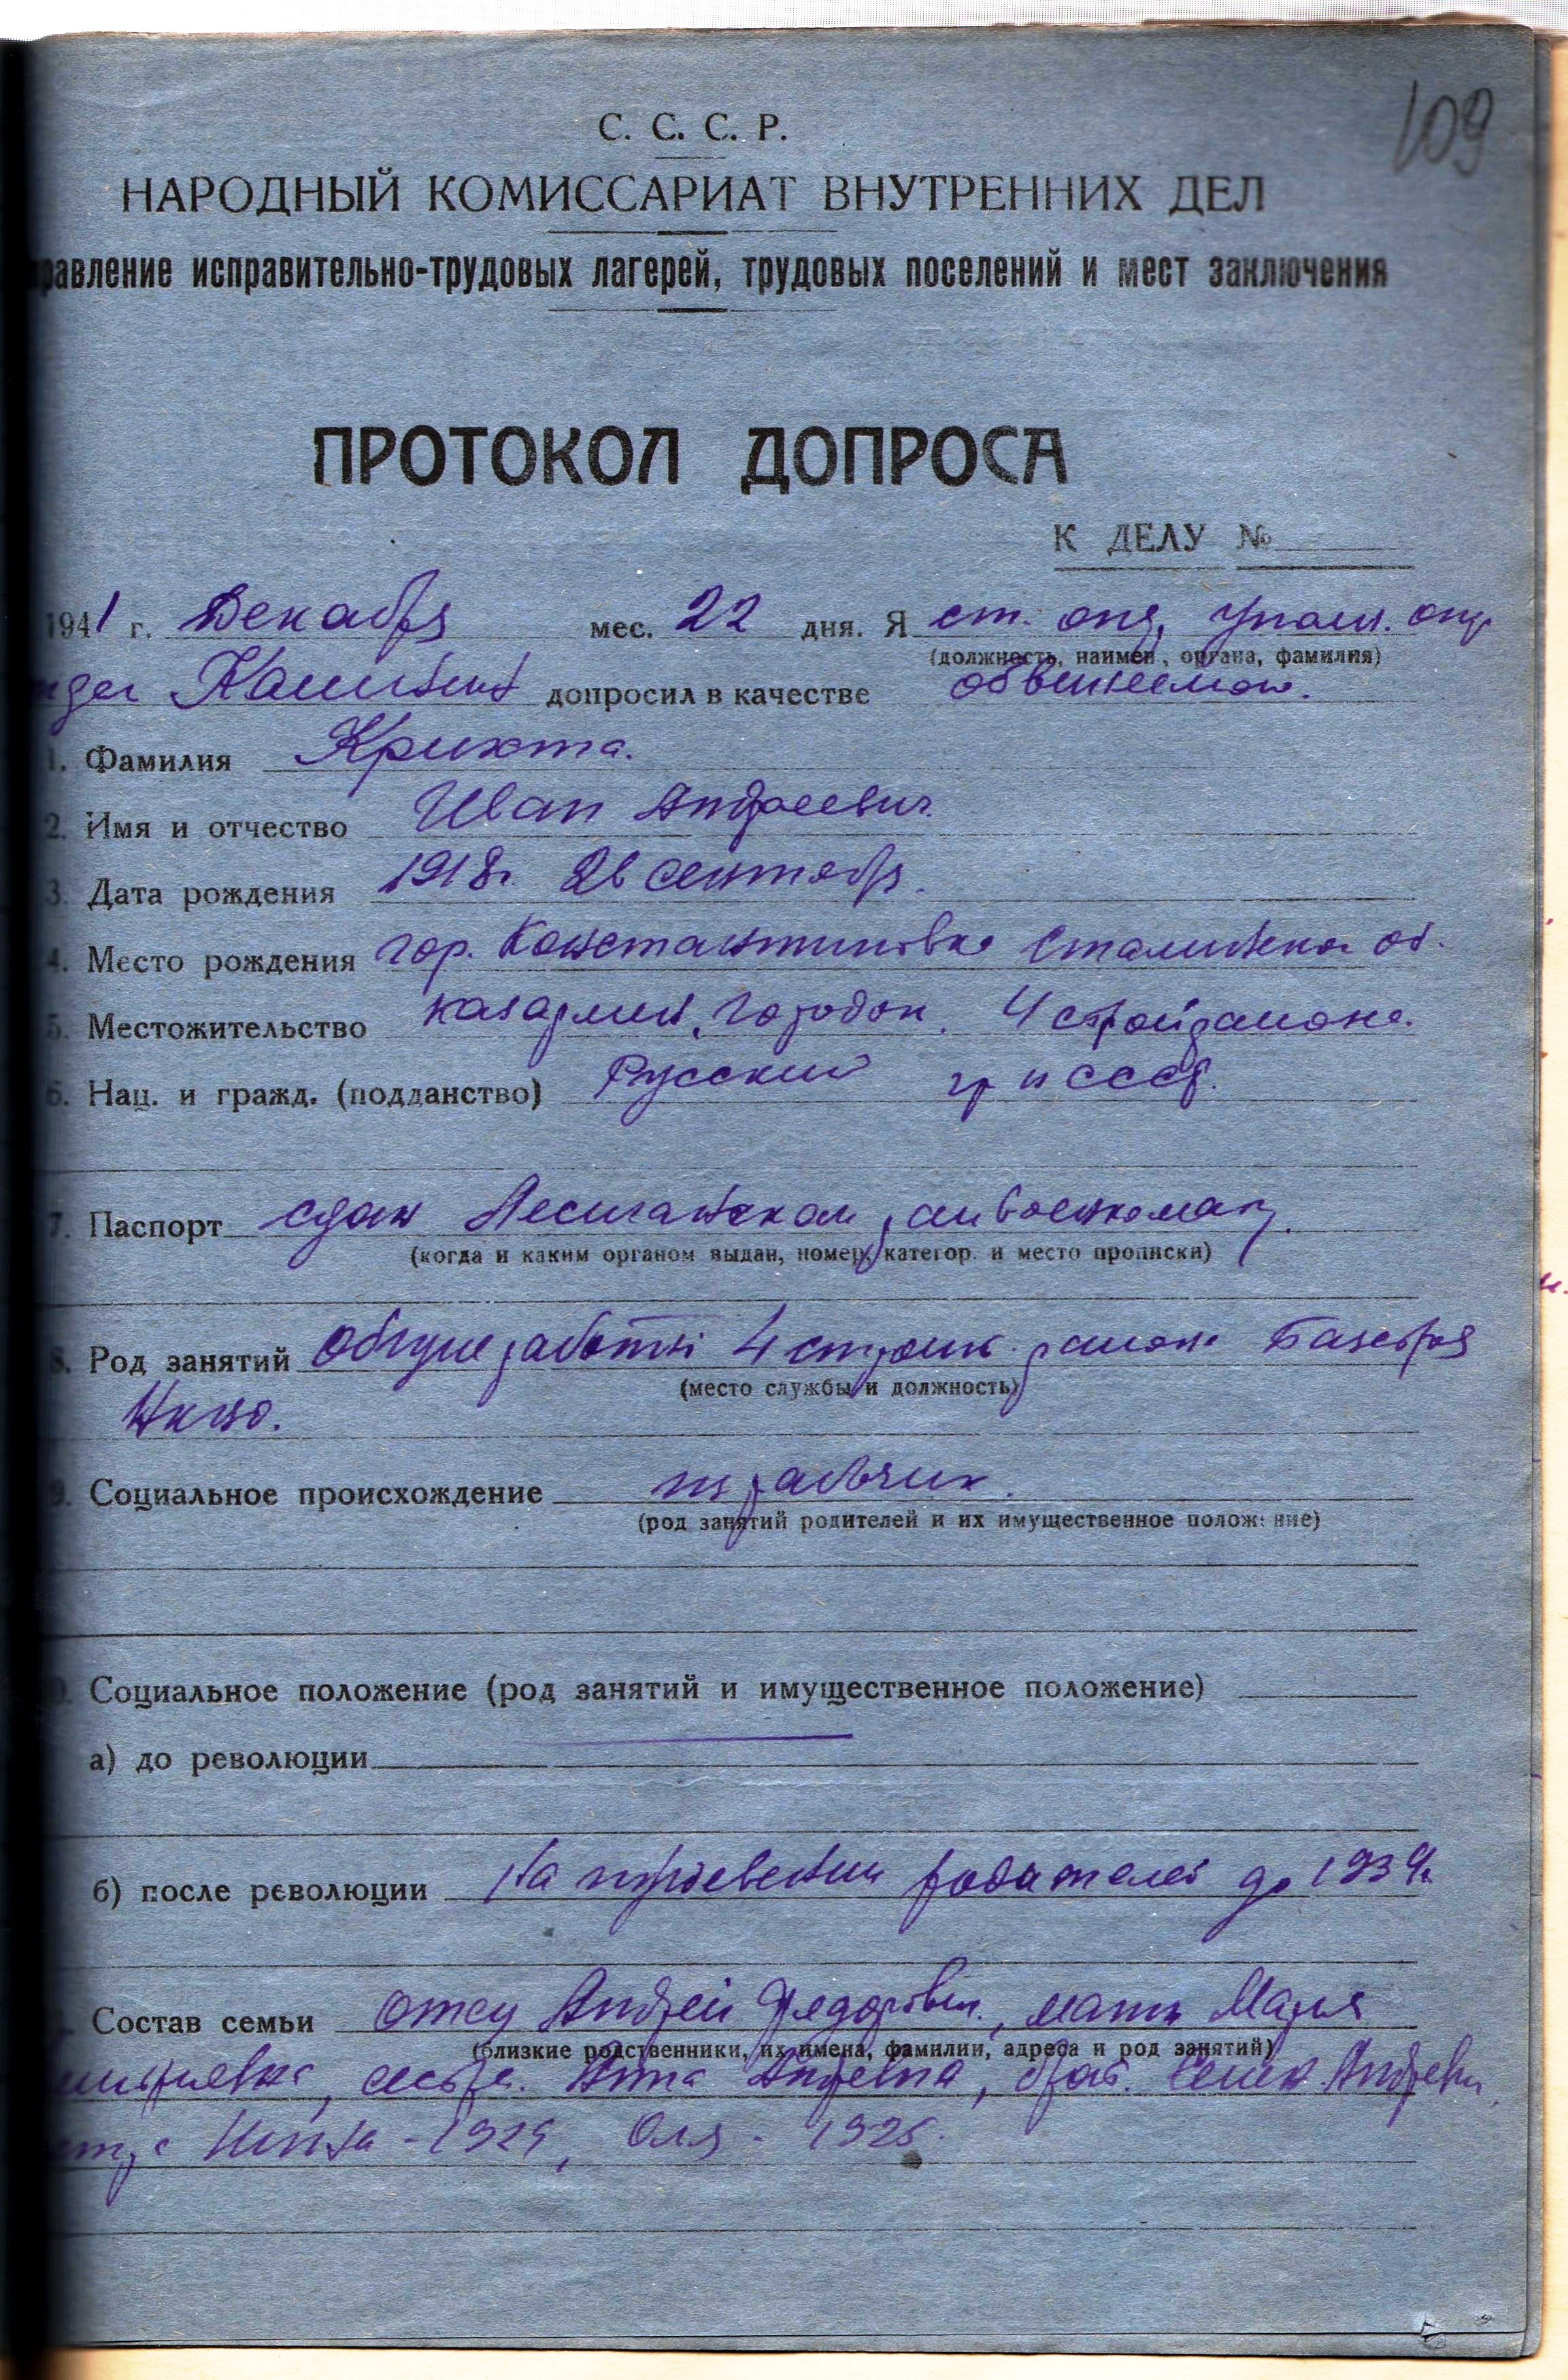 109
С. С. С. Р.
НАРОДНЫЙ КОМИССАРИАТ ВНУТРЕННИХ ДЕЛ
равление исправительно-трудовых лагерей, трудовых поселений и мест заключения
ПРОТОКОЛ ДОПРОСА
К ДЕЛУ №
1941 г. Декабря мес. 22 дня. Я ст. опр. Уполн. опр
(должность, наимен, органа, фамилия)
допросил в качестве обвиняемого.
1. Фамилия Крихта.
2. Имя и отчество Иван Андреевич.
3. Дата рождения 1918г. 26 сентября.
4. Место рождения гор. Константиновка Сталинской об.
5. Местожительство казармен. городок. 4 стройрайона.
6. Нац. и гражд. (подданство) Русский гр н СССР.
7. Паспорт сдан райвоенкомат.
(когда и каким органом выдан, номер, категор. и место прописки)
8. Род занятий общие работы 4 строит. района Базстроя
(место службы и должность)
НКВД.
9. Социальное происхождение
(род занятий родителей и их имущественное положение)
0. Социальное положение (род занятий и имущественное положение)
а) до революции
б) после революции На иждивении родителей до 1934г.
Состав семьи отец Андрей Федорович, мать Мария
(близкие родственники, их имена, фамилии, адреса и род занятий)
сестра. Анна Андреевна, брат. Семен Андреевич,
Нина - 1925, Оля - 1926.